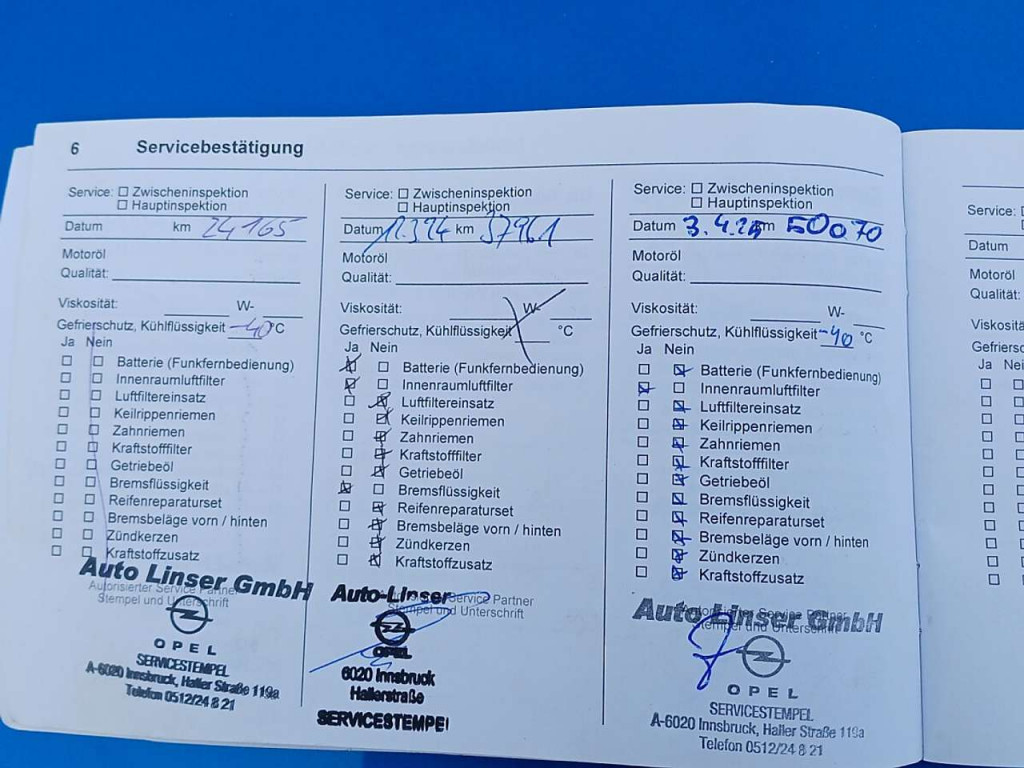 6 Servicebestätigung
Service: ☐ Zwischeninspektion
☐ Hauptinspektion
Datum km 24165
Motoröl
Qualität:
Viskosität: W-
Gefrierschutz, Kühlflüssigkeit -40 °C
Ja Nein
Batterie (Funkfernbedienung)
Innenraumluftfilter
Luftfiltereinsatz
Keilrippenriemen
Zahnriemen
Kraftstofffilter
Getriebeöl
Bremsflüssigkeit
Reifenreparaturset
Bremsbeläge vorn / hinten
Zündkerzen
Kraftstoffzusatz
Auto Linser GmbH
Autorisierter Service Partner
Stempel und Unterschrift
OPEL
SERVICESTEMPEL
A-6020 Innsbruck, Haller Straße 119a
Telefon 0512/24 8 21
Service: ☐ Zwischeninspektion
☐ Hauptinspektion
Datum km 37961
Motoröl
Qualität:
Viskosität: W-
Gefrierschutz, Kühlflüssigkeit °C
Ja Nein
Batterie (Funkfernbedienung)
Innenraumluftfilter
Luftfiltereinsatz
Keilrippenriemen
Zahnriemen
Kraftstofffilter
Getriebeöl
Bremsflüssigkeit
Reifenreparaturset
Bremsbeläge vorn / hinten
Zündkerzen
Kraftstoffzusatz
Auto-Linser Service Partner
Stempel und Unterschrift
OPEL
6020 Innsbruck
Hallerstraße
SERVICESTEMPEL
Service: ☐ Zwischeninspektion
☐ Hauptinspektion
Datum 3.4. km 50070
Motoröl
Qualität:
Viskosität: W-
Gefrierschutz, Kühlflüssigkeit -40 °C
Ja Nein
Batterie (Funkfernbedienung)
Innenraumluftfilter
Luftfiltereinsatz
Keilrippenriemen
Zahnriemen
Kraftstofffilter
Getriebeöl
Bremsflüssigkeit
Reifenreparaturset
Bremsbeläge vorn / hinten
Zündkerzen
Kraftstoffzusatz
Auto Linser GmbH
Autorisierter Service Partner
Stempel und Unterschrift
OPEL
SERVICESTEMPEL
A-6020 Innsbruck, Haller Straße 119a
Telefon 0512/24 8 21
Service:
Datum
Motoröl
Qualität:
Viskosi
Gefriersc
Ja Nei